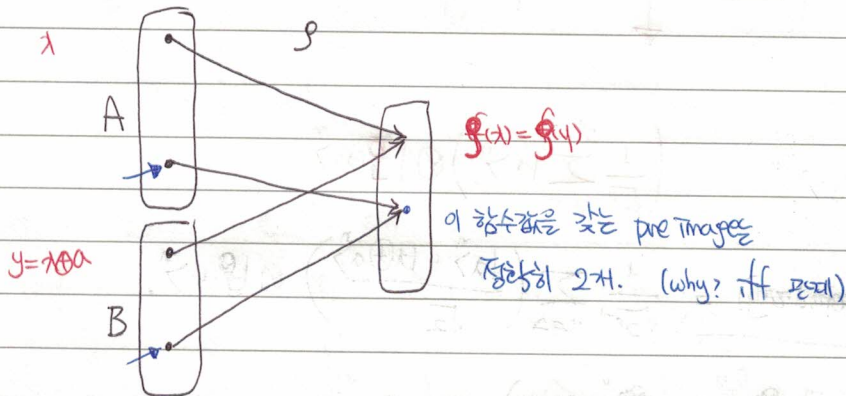 x
f
A
f(x)=f(y)
이 함수값을 갖는 pre image는
y=x⊕a
정확히 2개. (why? iff 관계)
B